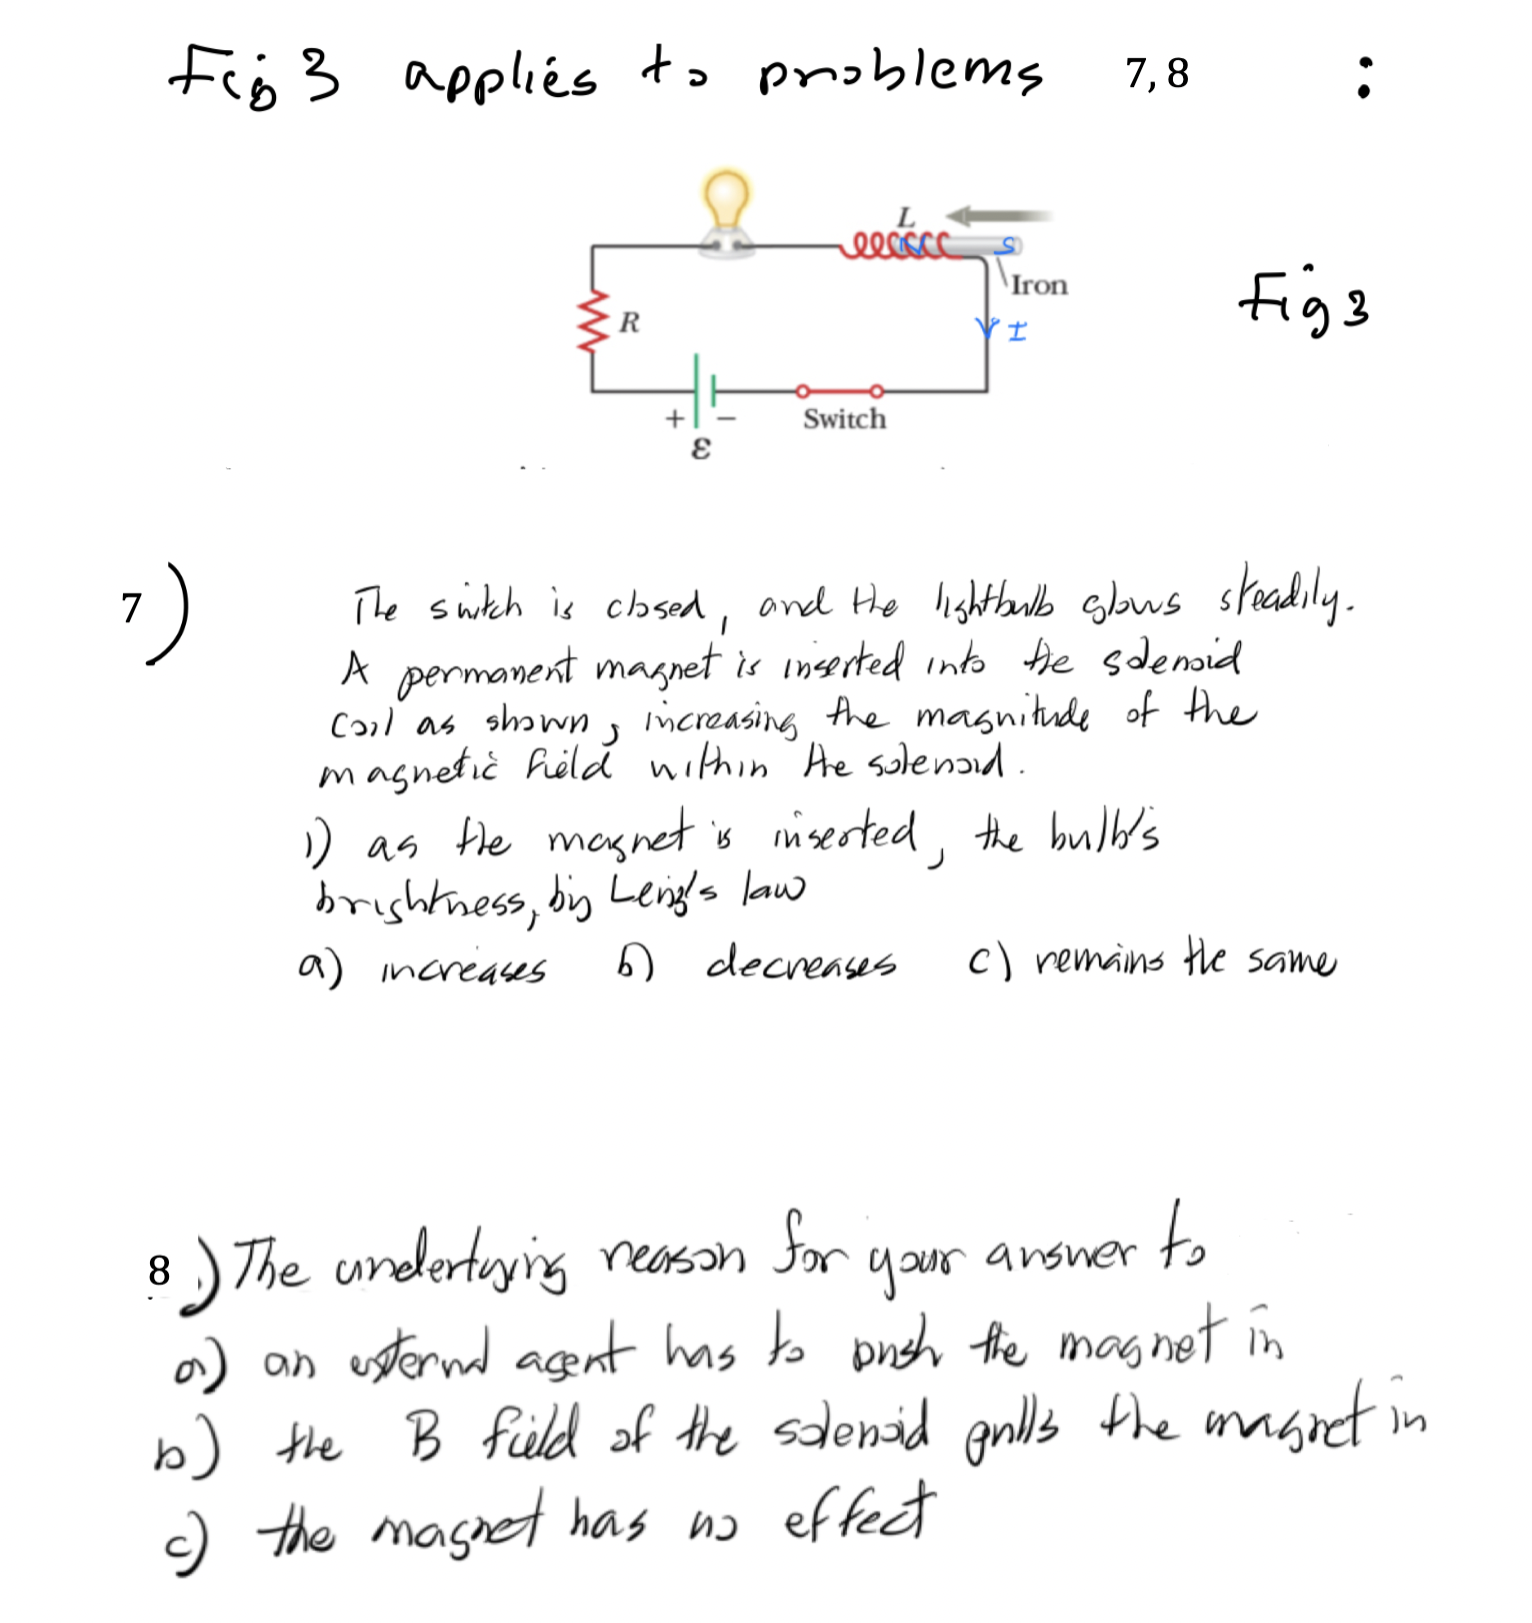 Fig 3 applies to problems 7, 8 :
L
N S
Iron
I
R
+ −
ε
Switch
Fig 3
7) The switch is closed, and the lightbulb glows steadily.
A permanent magnet is inserted into the solenoid
coil as shown, increasing the magnitude of the
magnetic field within the solenoid.
1) as the magnet is inserted, the bulb's
brightness, by Lenz's law
a) increases b) decreases c) remains the same
8.) The underlying reason for your answer to
a) an external agent has to push the magnet in
b) the B field of the solenoid pulls the magnet in
c) the magnet has no effect